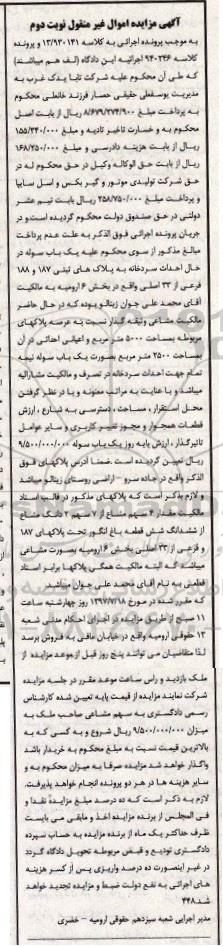 آگهی مزایده اموال غیر منقول نوبت دوم
به موجب پرونده اجرائی به کلاسه ۱۳/۹۳۰۱۴۱ و پرونده
کلاسه ۹۴۰۲۴۶ اجرائیه این دادگاه (لف هم میباشند)
که طی آن محکوم علیه شرکت تابا یدک غرب به
مدیریت یوسفعلی حقیقی حصار فرزند خانعلی محکوم
به پرداخت مبلغ ۸/۶۷۹/۲۷۴/۹۰۰ ریال از بابت اصل
محکوم به و خسارت تاخیر تادیه و مبلغ ۱۵۵/۳۴۰/۰۰۰
ریال از بابت هزینه دادرسی و مبلغ ۱۶۸/۷۵۰/۰۰۰
ریال از بابت حق الوکاله وکیل در حق محکوم له در
حق شرکت تولیدی موتور و گیر بکس و اصل سایپا
و پرداخت مبلغ ۲۵۸/۷۵۰/۰۰۰ ریال بابت نیم عشر
دولتی در حق صندوق دولت محکوم گردیده است و در
جریان پرونده اجرائی فوق الذکر به علت عدم پرداخت
مبالغ مذکور از سوی محکوم علیه یک باب سوله در
حال احداث سردخانه به پلاک های ثبتی ۱۸۷ و ۱۸۸
فرعی از ۳۳ اصلی واقع در بخش ۶ ارومیه به مالکیت
آقای محمد علی جوان زینالو بوده که در حال حاضر
مالکیت مشاعی وثیقه گذار نسبت به عرصه پلاکهای
مربوطه بمساحت ۵۰۰۰ متر مربع و اعیانی احداثی در آن
بمساحت ۲۵۰۰ متر مربع بصورت یک باب سوله نیمه
تمام جهت احداث سردخانه در تصرف و مالکیت مشارالیه
میباشد و با عنایت به مراتب معنونه و با در نظر گرفتن
محل استقرار ، مساحت ، دسترسی به شارع ، ارزش
قطعات همجوار و مجوز تغییر کاربری و سایر عوامل
تاثیرگذار ، ارزش پایه روز یک باب سوله ۹/۵۰۰/۰۰۰/۰۰۰
ریال تعیین گردیده است .ضمنا آدرس پلاکهای فوق
الذکر واقع در جاده سرو – اراضی روستای زینالو میباشد
و لازم بذکر است که پلاکهای مذکور در قالب اسناد
مالکیت مقدار ۴ سهم مشاع از ۷ سهم ۲ دانگ مشاع
از ششدانگ شش قطعه باغ انگور تحت پلاکهای ۱۸۷
و فرعی از ۳۳ اصلی بخش ۶ ارومیه بصورت مشاعی
میباشند که البته مالکیت همگی پلاکها برابر اسناد
قطعی به نام آقای محمد علی جوان میباشد
که مقرر شده در مورخ ۱۳۹۷/۷/۱۸ روز چهارشنبه ساعت
۱۱ صبح از طریق مزایده در اجرای احکام مدنی شعبه
۱۳ حقوقی ارومیه واقع در خیابان مافی به فروش برسد
لذا متقاضیان می توانند پنج روز قبل از موعد مزایده از
ملک بازدید و راس ساعت موعد مقرر در جلسه مزایده
شرکت نمایند مزایده از قیمت پایه تعیین شده کارشناس
رسمی دادگستری به سهم مشاعی صاحب ملک به
میزان ۹/۵۰۰/۰۰۰/۰۰۰ ریال شروع و به کسی که به
بالاترین قیمت نسبت به مبلغ محکوم به خریدار باشد
واگذار خواهد شد مزایده صرفا به میزان محکوم به و
سایر هزینه ها در هر دو پرونده انجام خواهد پذیرفت.
لازم به ذکر است که ده درصد مبلغ مزایده نقدا و
فی المجلس از برنده مزایده اخذ و مابقی می بایست
ظرف حداکثر یک ماه از برنده مزایده به حساب سپرده
دادگستری تودیع و قبض مربوطه تحویل دادگاه گردد
در غیر اینصورت ده درصد واریزی پس از کسر هزینه
های اجرائی به نفع دولت ضبط و مزایده تجدید خواهد
شد ۴۴۸
مدیر اجرایی شعبه سیزدهم حقوقی ارومیه – خضری